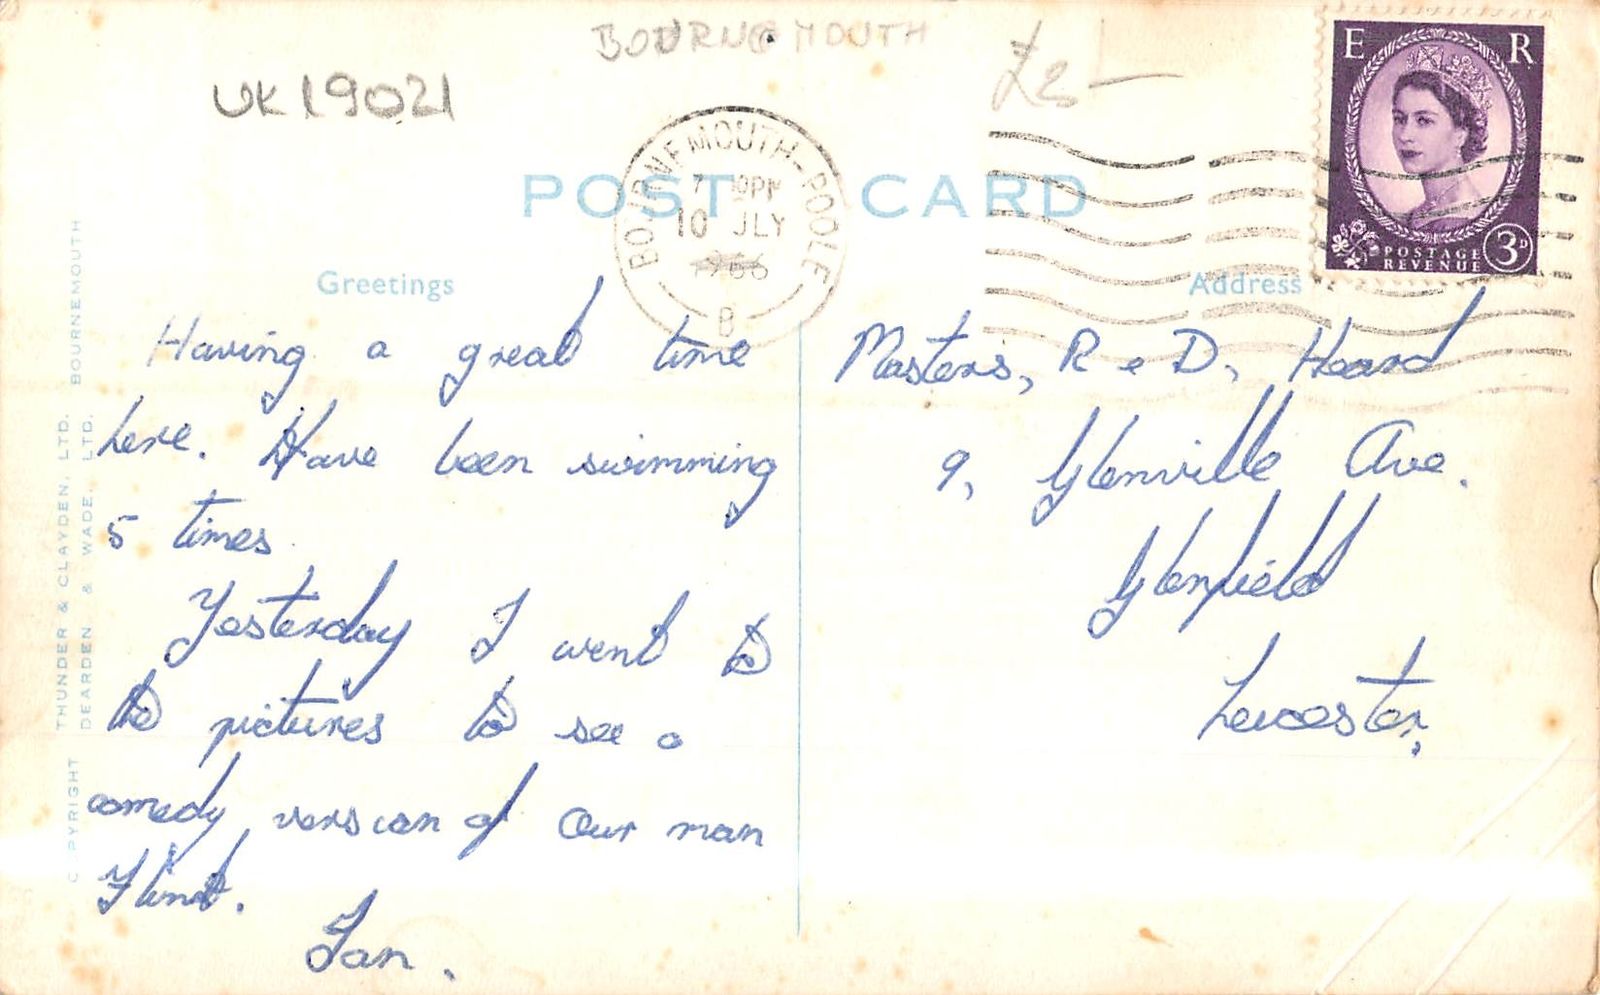 BOURNEMOUTH
UK 19021
E R
POSTAGE
REVENUE
3D
BOURNEMOUTH-POOLE
10 JLY
1966
B
POST CARD
Greetings
Address
Having a great time
here. Have been swimming
5 times
Yesterday I went to
the pictures to see a
comedy verscan of Our man
Flint.
Ian.
Masters, R & D, Heard
9, Glenville Ave.
Glenfield
Leicester,
COPYRIGHT THUNDER & CLAYDEN, LTD. BOURNEMOUTH
DEARDEN & WADE, LTD.